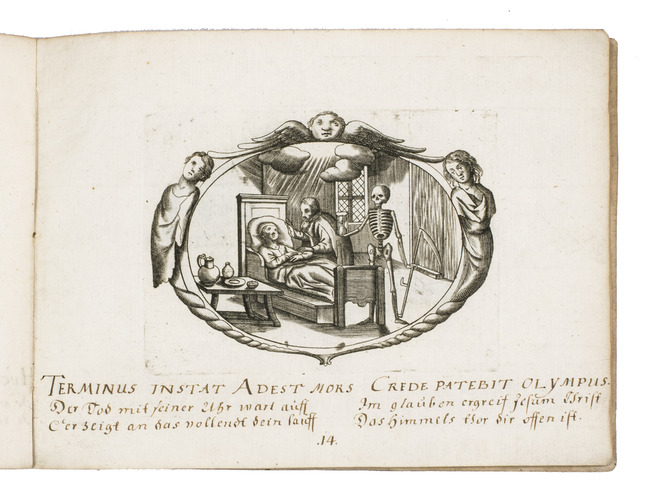 TERMINUS INSTAT ADEST MORS CREDE PATEBIT OLYMPUS.
Der Tod mit seiner Uhr wart auff
zeigt an das vollendt dein lauff
Im glauben ergreif Jesum Christ
Das Himmels thor dir offen ist.
.14.